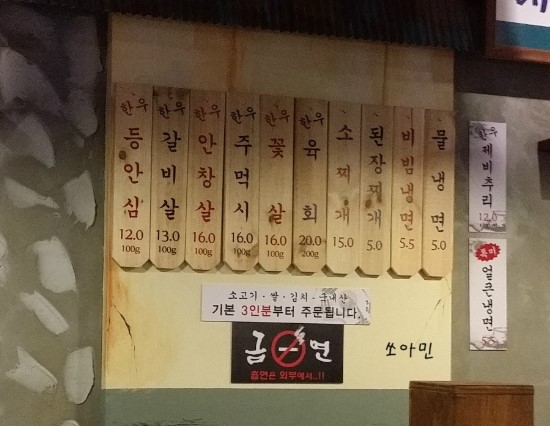 한우 등안심 12.0 100g
한우 갈비살 13.0 100g
한우 안창살 16.0 100g
한우 주먹시 16.0 100g
한우 꽃살 16.0 100g
한우 육회 20.0 200g
소찌개 15.0
된장찌개 5.0
비빔냉면 5.5
물냉면 5.0
한우 제비추리 12.0
얼큰냉면
소고기·쌀·김치·국내산
기본 3인분부터 주문됩니다.
금연
흡연은 외부에서..!!
쏘아민